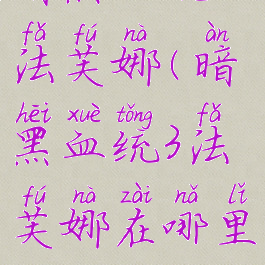 fǎ fú nà àn
法芙娜(暗
hēi xuè tǒng fǎ
黑血统3法
fú nà zài nǎ lǐ
芙娜在哪里